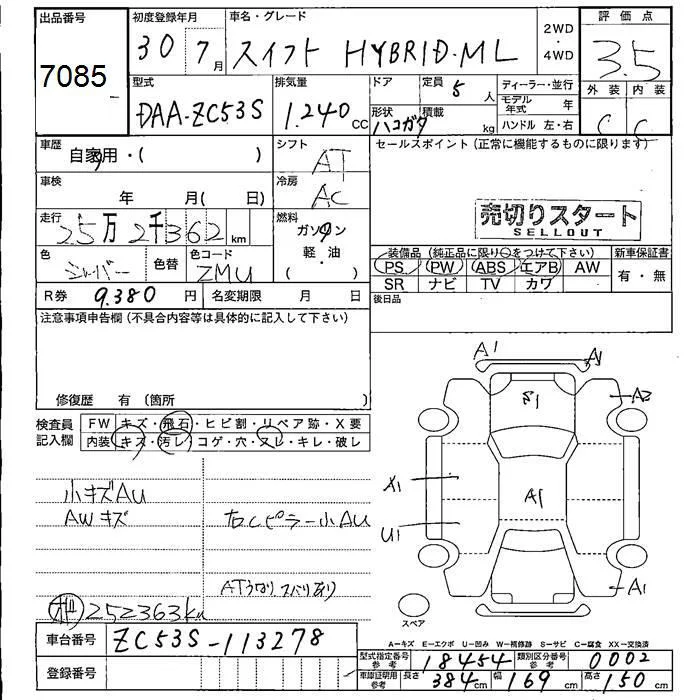 出品番号
7085
初度登録年月
30 7月
車名・グレード
スイフト HYBRID・ML
2WD
・
4WD
評価点
3.5
外装 内装
C C
型式
DAA-ZC53S
排気量
1.240 CC
ドア
形状
ハコガタ
定員 5 人
積載
kg
ディーラー・並行
モデル年式 年
ハンドル 左・右
車歴
自家用・( )
シフト
AT
セールスポイント (正常に機能するものに限ります)
車検
年 月( 日)
冷房
AC
走行
25万2千362 km
燃料
ガソリン
軽・油
( )
売切りスタート
SELLOUT
色
シルバー
色替
色コード
ZMU
装備品 (純正品に限り○をつけて下さい)
PS PW ABS エアB AW
SR ナビ TV カワ
新車保証書
有・無
R券 9.380 円
名変期限 月 日
後日品
注意事項申告欄 (不具合内容等は具体的に記入して下さい)
修復歴 有 (箇所 )
検査員
記入欄
FW キズ・飛石・ヒビ割・リペア跡・X要
内装 キズ・汚レ・コゲ・穴・スレ・キレ・破レ
小キズAU
AWキズ
右Cピラー小AU
ATうなりスベリあり
252363km
A1
A1
S1
A2
X1
A1
U1
A1
スペア
A-キズ E-エクボ U-凹み W-補修跡 S-サビ C-腐食 XX-交換済
車台番号
ZC53S-113278
登録番号
型式指定番号
参考
18454
類別区分番号
参考
0002
車庫証明用
参考
長さ 384 cm
幅 169 cm
高さ 150 cm